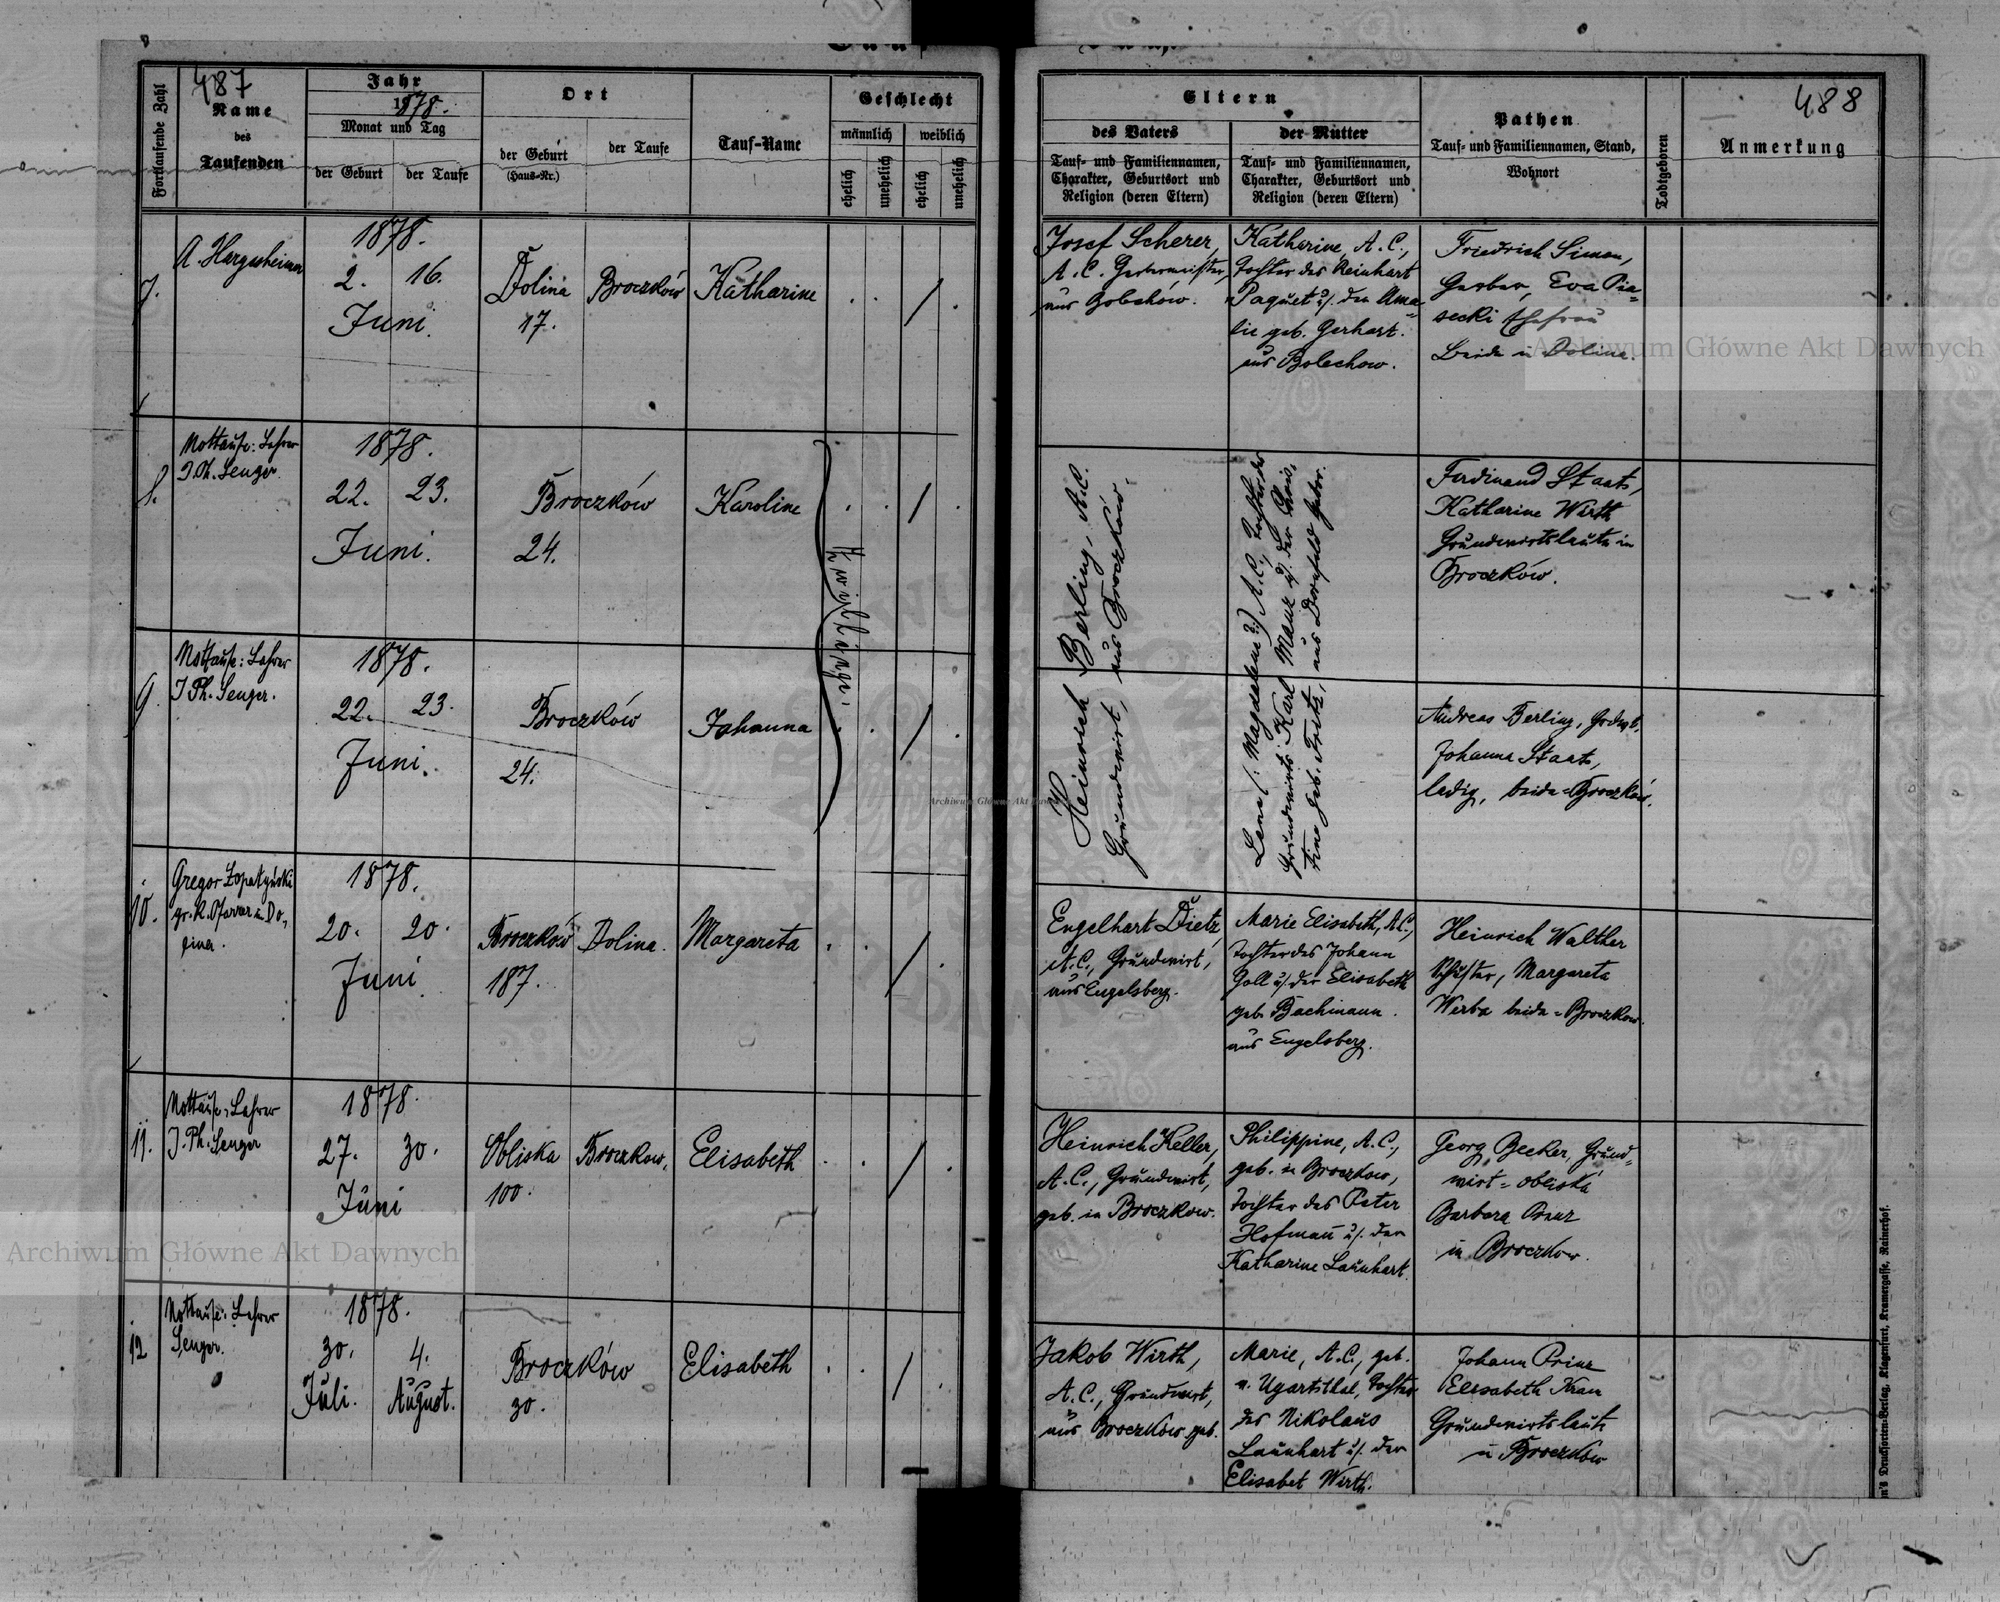 487
Fortlaufende Zahl
Name
des
Taufenden
Jahr
1878.
Monat und Tag
der Geburt
der Taufe
Ort
der Geburt
(Haus-Nr.)
der Taufe
Tauf-Name
Geschlecht
männlich
weiblich
ehelich
unehelich
ehelich
unehelich
7.
A. Hargesheimer
1878.
2. 16.
Juni.
Dolina
17.
Broczków
Katharine
8.
Nottaufe: Lehrer
J. Ph. Senger
1878.
22. 23.
Juni.
Broczków
24.
Karoline
Zwillinge
9.
Nottaufe: Lehrer
J Ph. Senger.
1878.
22. 23.
Juni.
Broczków
24.
Johanna
10.
Gregor Łopatyński
gr. K. Pfarrer in Do-
lina.
1878.
20. 20.
Juni
Broczków
187.
Dolina.
Margareta
11.
Nottaufe: Lehrer
J. Ph. Senger
1878.
27. 30.
Juni
Obliska
100.
Broczkow.
Elisabeth
12
Nottaufe: Lehrer
Senger.
1878.
30. 4.
Juli. August.
Broczków
30.
Elisabeth
488
Eltern
des Vaters
Tauf- und Familiennamen,
Charakter, Geburtsort und
Religion (deren Eltern)
der Mutter
Tauf- und Familiennamen,
Charakter, Geburtsort und
Religion (deren Eltern)
Pathen
Tauf- und Familiennamen, Stand,
Wohnort
Todtgeboren
Anmerkung
Josef Scherer,
A. C. Gerbermeister,
aus Bolechów.
Katharine, A. C.,
Tochter des Reinhart
Paquet u/. der Ama=
lie geb. Gerhart.
aus Bolechow.
Friedrich Simon,
Gerber, Eva Pia=
secki Ehefrau
beide in Dolina.
Heinrich Berling, A.C.
Grundwirt, aus Broczków.
Lena (: Magdalena :) A. C., Tochter des
Grundwirts Karl Manz u/. der Chris.
tine geb. Fritz, aus Dornfeld gebor.
Ferdinand Staats,
Katharine Wirth
Grundwirtsleute in
Broczków.
Andreas Berling, Grdwt.
Johanna Staats,
ledig, beide = Broczków.
Engelhart Dietz,
A. C., Grundwirt,
aus Engelsberg.
Marie Elisabeth, A.C.,
Tochter des Johann
Goll u/. der Elisabeth
geb. Bachmann.
aus Engelsberg.
Heinrich Walther
Schuster, Margareta
Werba beide = Broczkow.
Heinrich Keller,
A. C., Grundwirt,
geb. in Broczkow.
Philippine, A. C.,
geb. in Broczkow,
Tochter des Peter
Hofman u/. der
Katharine Launhart.
Georg Becker, Grund=
wirt = Obliska
Barbara Prinz
in Broczkow.
Jakob Wirth,
A. C., Grundwirt,
aus Broczków geb.
Marie, A. C., geb.
in Ugartsthal, Tochter
des Nikolaus
Launhart u/. der
Elisabet Werth.
Johann Prinz
Elisabeth Kran
Grundwirtsleute
in Broczków
Archiwum Główne Akt Dawnych
Archiwum Główne Akt Dawnych
Archiwum Główne Akt Dawnych
n's Drucksorten-Verlag, Klagenfurt, Kramergasse, Rainerhof.